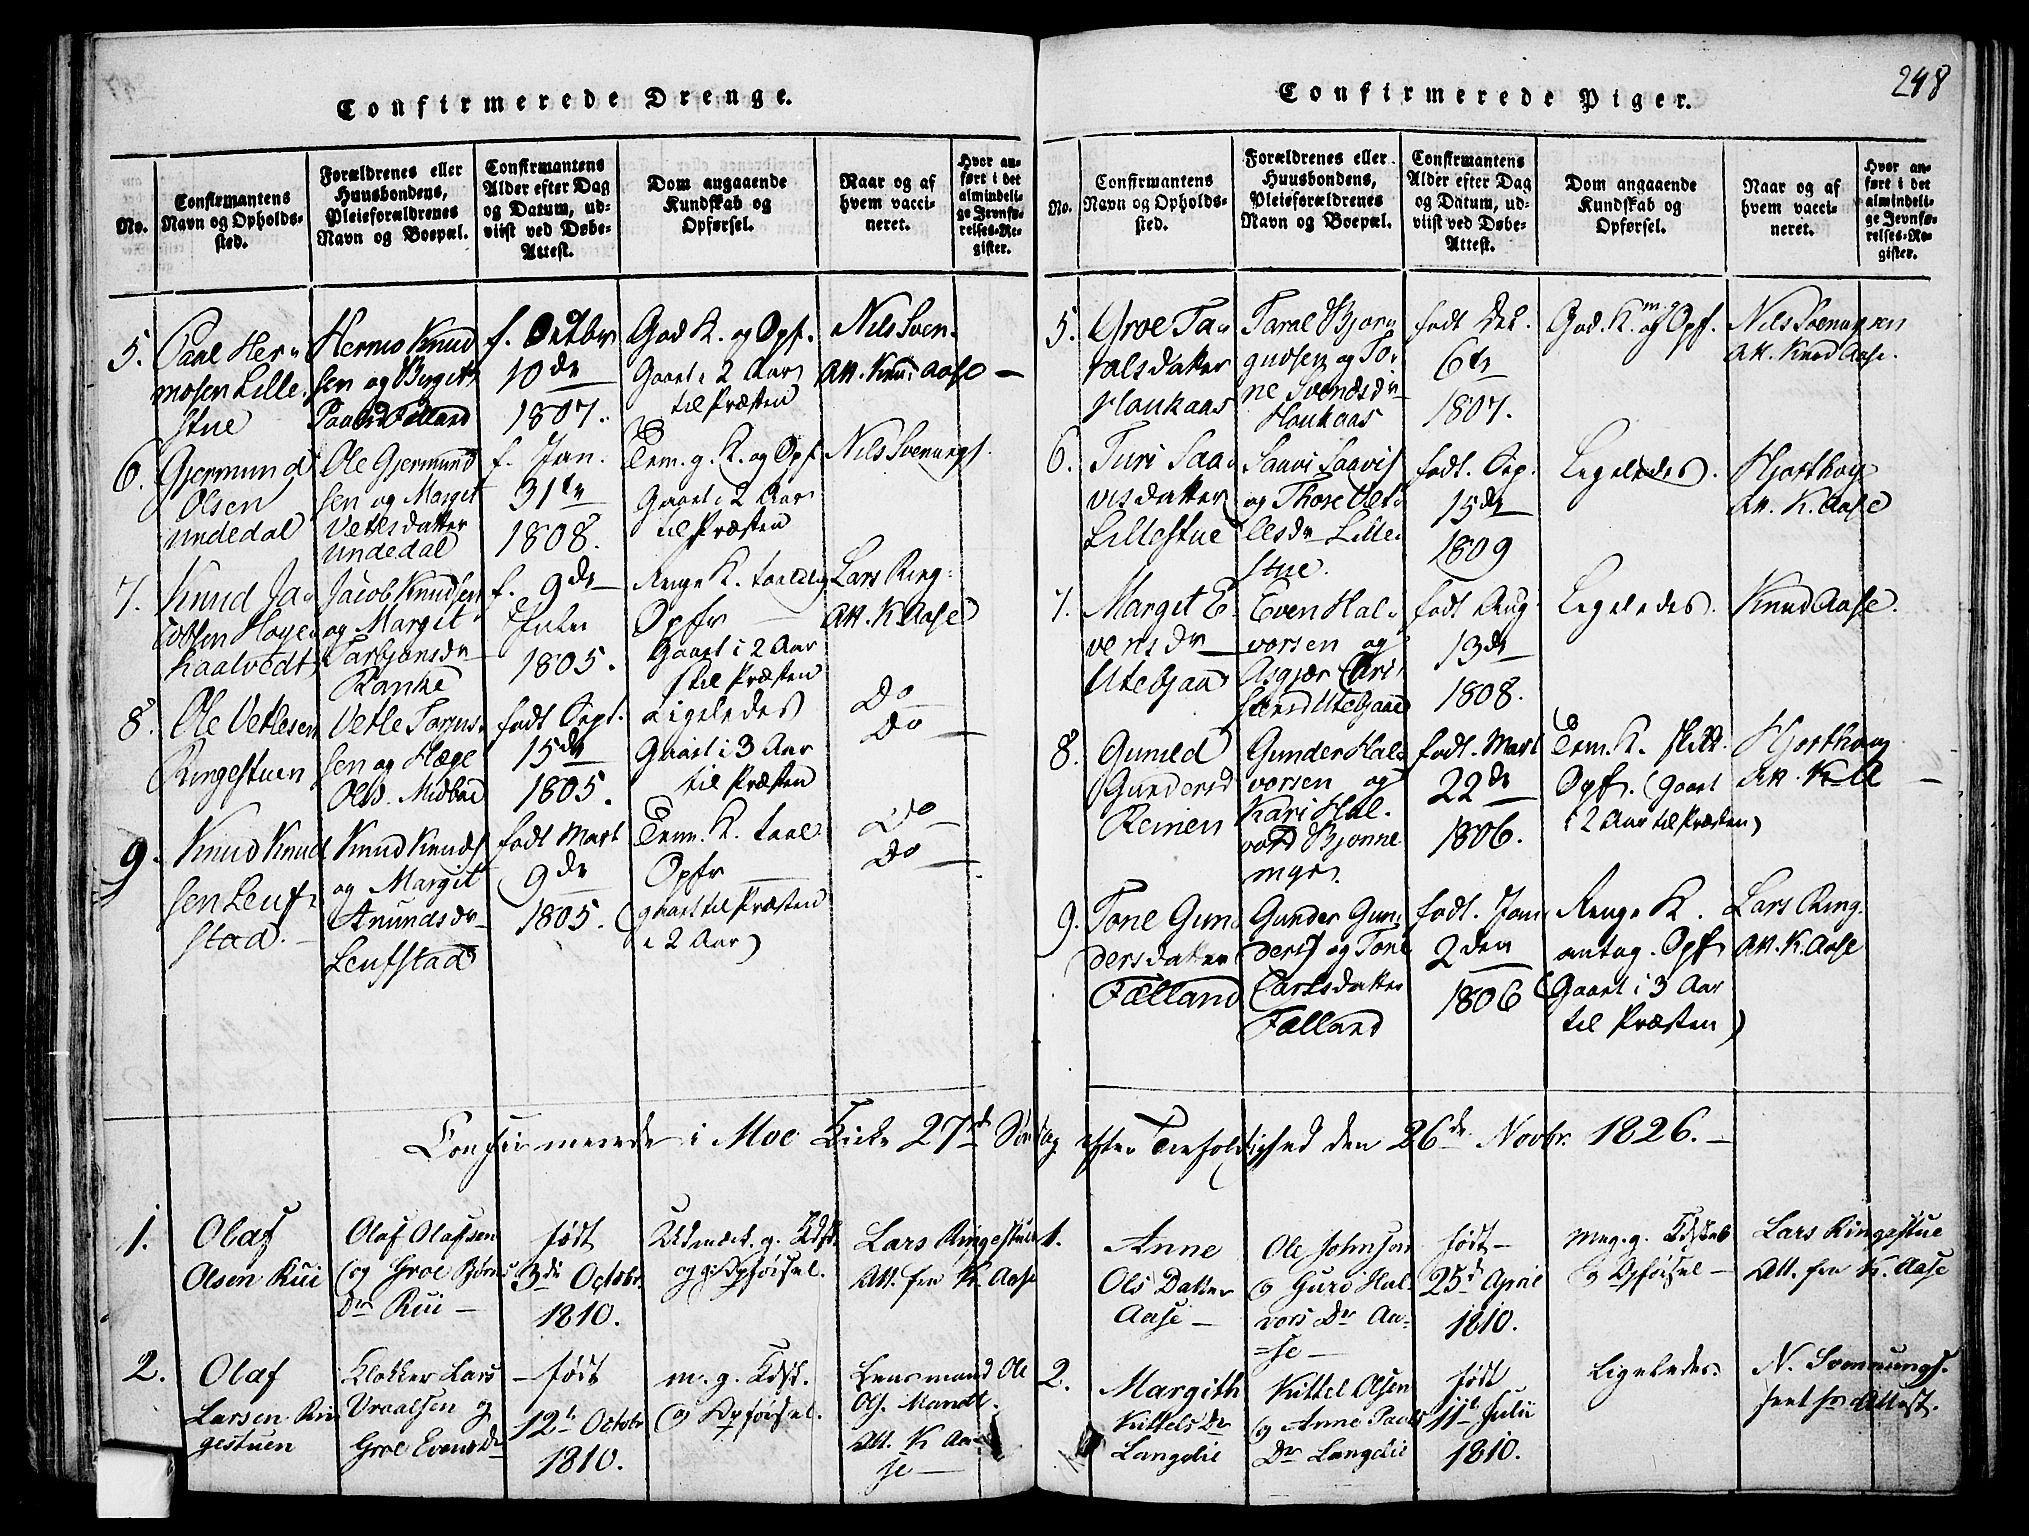 248
Confirmerede Drenge.
No.
Confirmantens
Navn og Opholds-
sted.
Forældrenes eller
Huusbondens,
Pleieforældrenes
Navn og Boepæl.
Confirmantens
Alder efter Dag
og Datum, ud-
viist ved Døbe-
Attest.
Dom angaaende
Kundskab og
Opførsel.
Naar og af
hvem vacci-
neret.
Hvor an-
ført i det
almindeli-
ge Jevnfø-
relses-Re-
gister.
5.
Paal Her-
mosen Lille-
stue
Hermo Knud
sen og Birgit
Fælland
f. Octbr
10de
1807.
God K. og Opf.
Gaaet i 2 Aar
til Præsten
Nils Sven.
Att. Knud Aase
6.
Gjermund
Olsen
Undedal
Ole Gjermund
sen og Margit
Vetlesdatter
Undedal
f. Jan.
31te
1808.
Tem. g. K. og Opf
Gaaet i 2 Aar
til Præsten
Nils Svenungs.
7.
Knud Ja-
cobsen Høye
kaalvedt
Jacob Knudsen
og Margit
Tarbjønsdr
Ranke
f. 9de
Julii
1805.
K. taalelig
Opfr
Gaaet i 2 Aar
til Præsten
Lars Ring.
Att. K Aase
8.
Ole Vetlesen
Ringestuen
Vetle Tarjus-
sen og Hæge
Olsd. Midboe
født Sept.
15de
1805.
Ligeledes
Gaaet i 3 Aar
til Præsten
Do
Do
9.
Knud Knud
sen Leuf-
stad.
Knud Knuds
og Margit
Anundsdr
Leufstad
født Mart
9de
1805.
Tem. K. taal
Opfr
(gaaet til Præsten
i 2 Aar)
Do
Do
Confirmerede Piger.
No.
Confirmantens
Navn og Opholds-
sted.
Forældrenes eller
Huusbondens,
Pleieforældrenes
Navn og Boepæl.
Confirmantens
Alder efter Dag
og Datum, ud-
viist ved Døbe-
Attest.
Dom angaaende
Kundskab og
Opførsel.
Naar og af
hvem vacci-
neret.
Hvor an-
ført i det
almindeli-
ge Jevnfø-
relses-Re-
gister.
5.
Groe Ta-
ralsdatter
Houkaas
Taral Bjørn
gudsen og To-
ne Svendsdr
Houkaas
født Dec.
6te
1807.
God. K. og m. g. Opf.
Nils Svenungsen
Att. Knud Aase.
6.
Turi Saa-
visdatter
Lillestue
Saavi Saavis
og Thore Vet-
lesdr Lille-
stue.
født. Sep.
15de
1809
Ligeledes.
Hjorthoy
Att. K. Aase
7.
Margit E-
vensdr
Utebjaae
Even Hal-
vorsen og
Asgjær Chri-
Utebjaae
født Aug.
13de
1808.
Ligeledes.
Knud Aase.
8.
Guneld
Gundersd
Reinen
Gunder Hal-
vorsen og
Kari Hal-
vorsd Bjønne
myr.
født. Mart
22de
1806.
Tem. K. skikk.
Opf. (gaaet
i 2 Aar til Præsten)
Hjorthoy
Att.
9.
Tone Gun-
dersdatter
Fælland
Gunder Gun-
ders og Tone
Carlsdatter
Fælland
født. Jan.
2den
1806
K.
antag. Opf.
(Gaaet i 3 Aar
til Præsten)
Lars Ring.
Att. K. Aase
Confirmerede i Moe Kirke 27d Søndag efter Trefoldighed den 26de Novbr. 1826.
1.
Olaf
Olsen Rui
Olaf Olafsen
og Groe Børns
Dr Rui
født
3de Octobr.
1810.
Udmærk. g. Kdsk.
og g. Opførsel.
Lars Ringestuen
Att. fra K. Aase
2.
Olaf
Larsen Rin
gestuen
Klokker Lars
Vraalsen og
Groe Evensdr
født
12te Octobr
1810.
m. g. Kdsk.
og Opførsel.
Lensmand Ole
Ols. Mandt.
Att. K Aa-
se
1.
Anne
Ols Datter
Aase
Ole Johnson
og Guro Hal-
vors Dr Aa-
=se
født
25d April
1810.
meg. g. Kdskab
og Opførsel
Lars Ringestue
Att. fra K. Aase
2.
Margith
Kittels Dr
Langelie
Kittel Olsen
og Anne Pauls
Dr Langelie
født
11te Julii
1810.
Ligeledes.
N. Svennungs.
Attest.